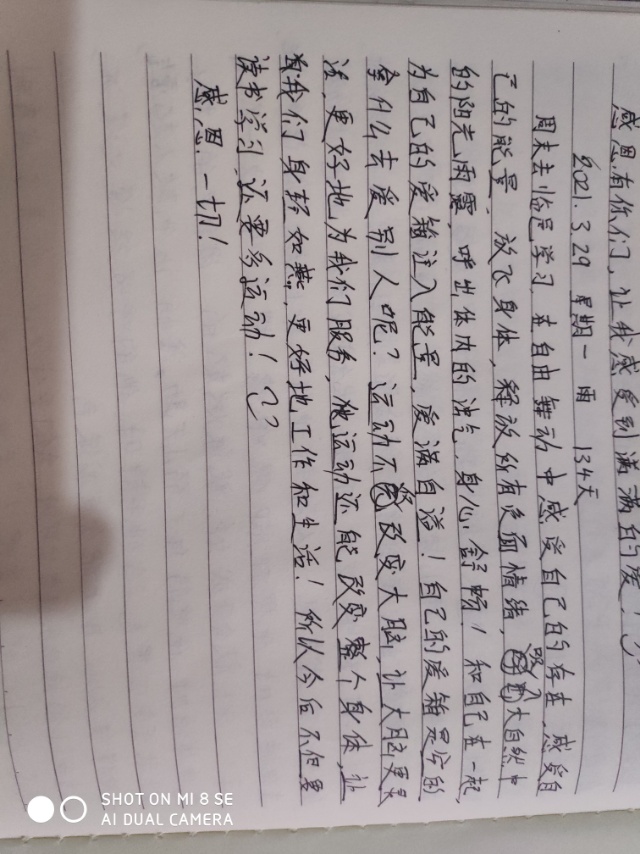 感恩有你们，让我感受到满满的爱！
2021.3.29 星期一 雨 134天
周末去临邑学习，在自由舞动中感受自己的存在，感受自
己的能量，放飞身体，释放所有负面情绪，吸大自然中
的阳光雨露，呼出体内的浊气，身心舒畅！和自己在一起，
为自己的爱箱注入能量，爱满自溢！自己的爱箱是空的
拿什么去爱别人呢？运动不能改变大脑，让大脑更灵
活，更好地为我们服务，而运动还能改变整个身体，让
我们身轻如燕，更好地工作和生活！所以今后不但要
读书学习，还要多运动！
感恩一切！
SHOT ON MI 8 SE
AI DUAL CAMERA